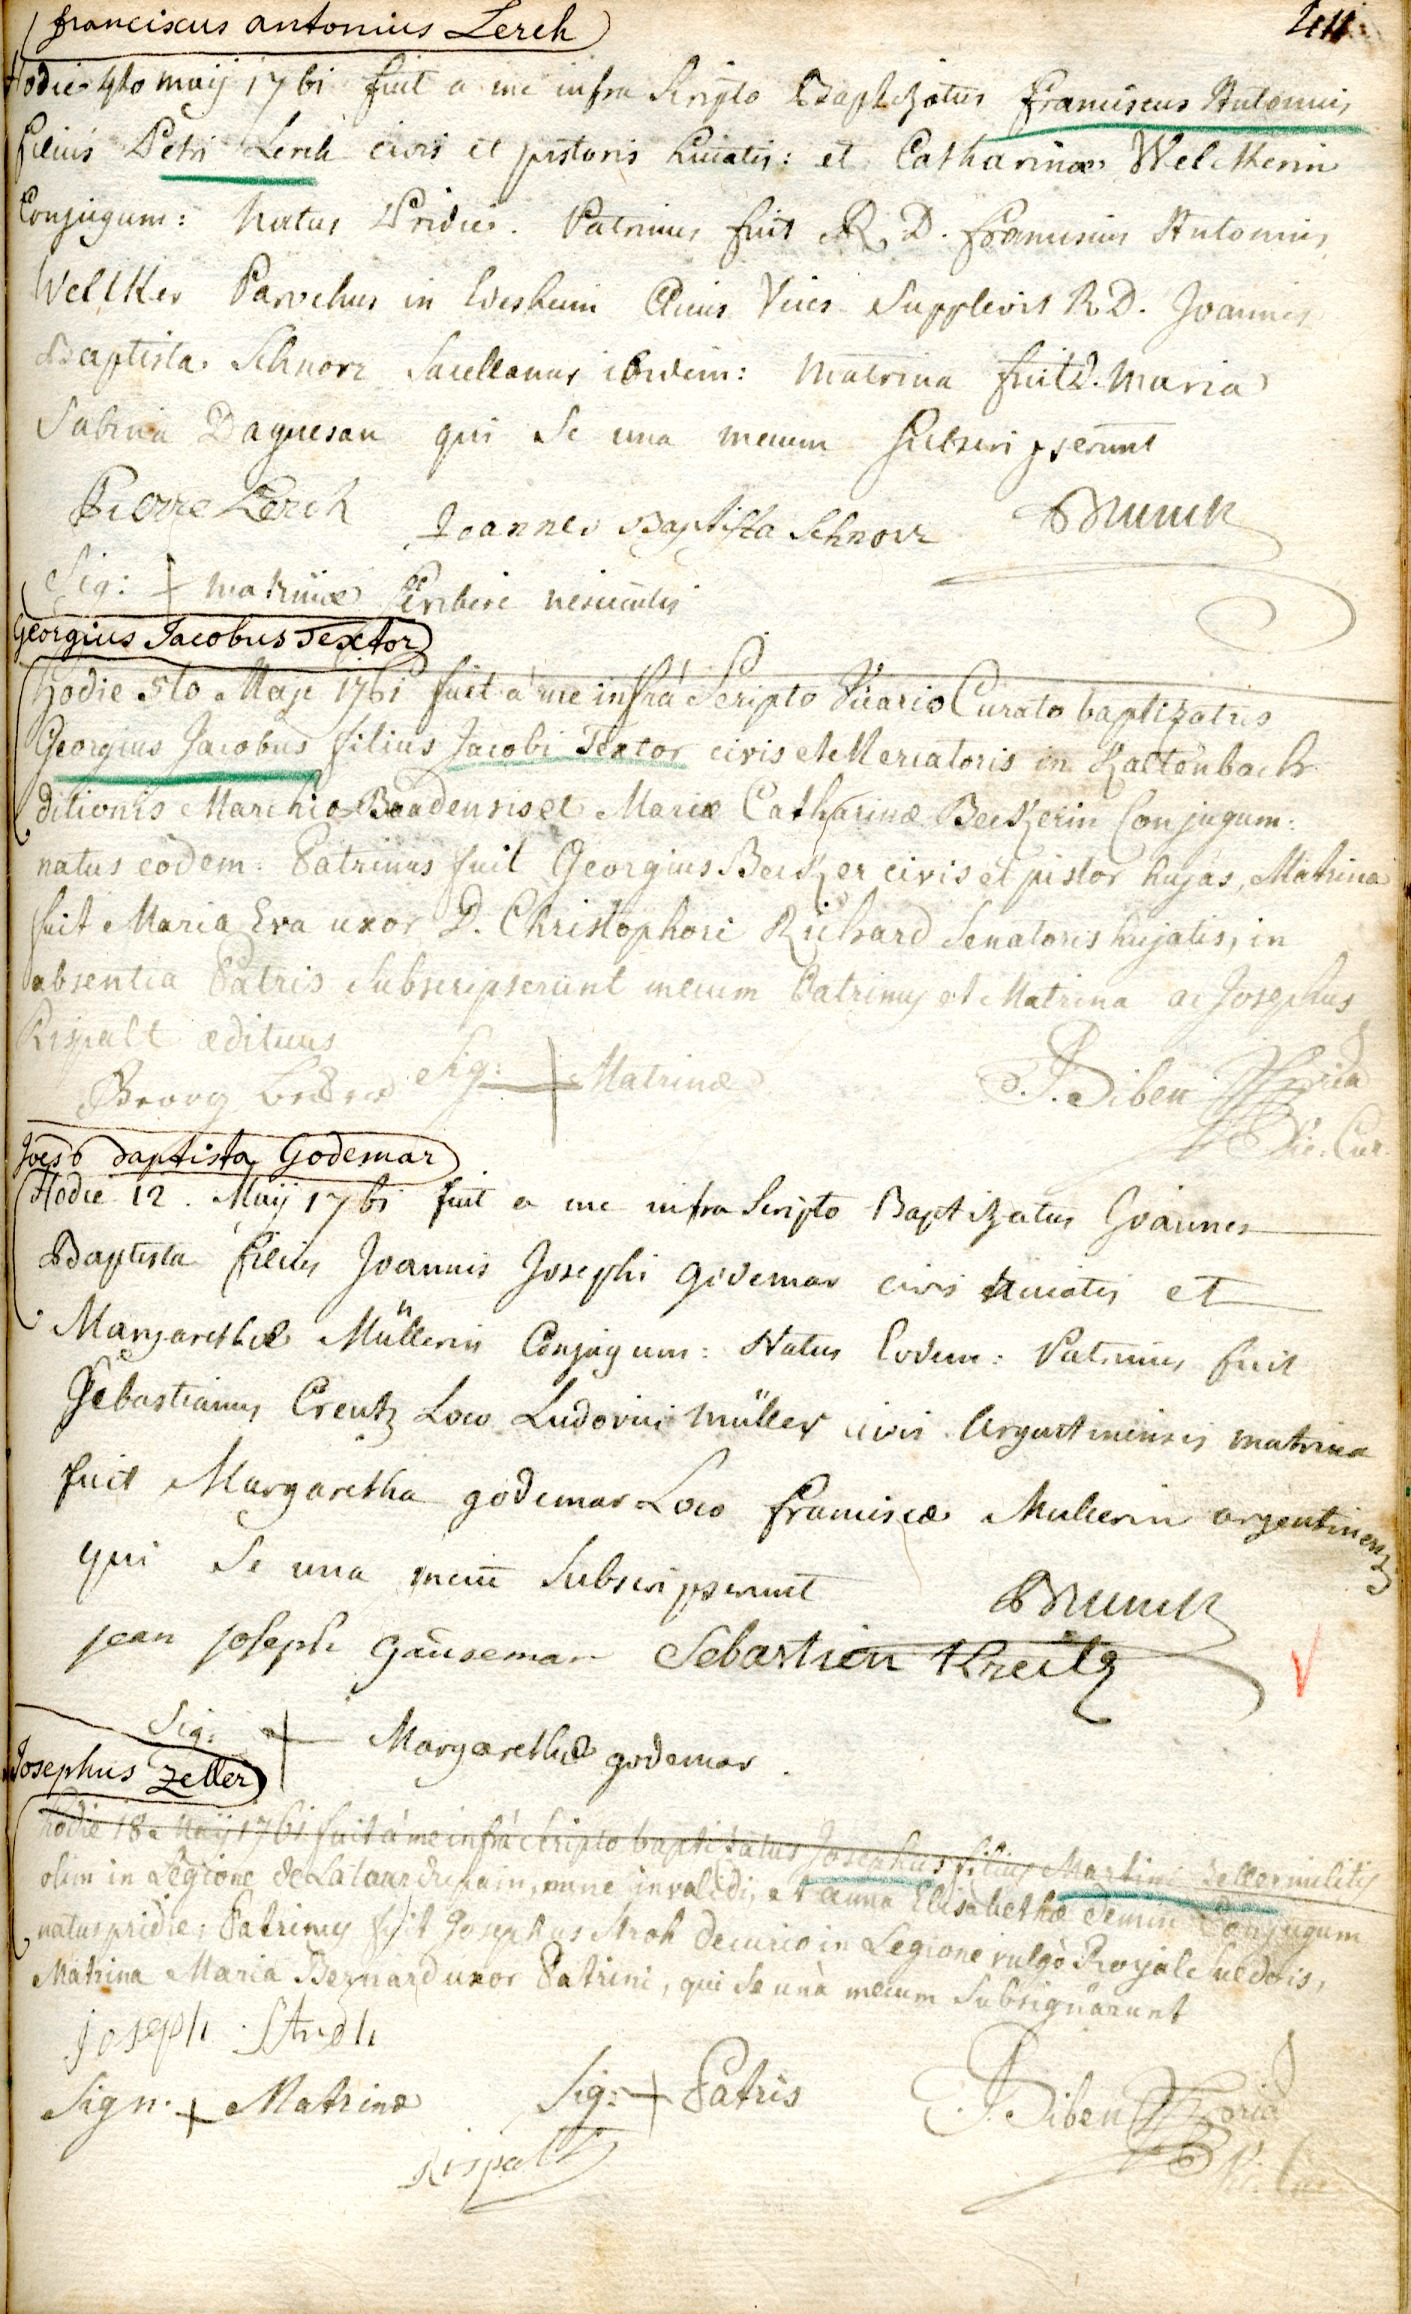 franciscus antonius Lerch
Hodie 4to maij 1761 fuit a me infra Scripto Baptizatus franciscus Antonius
filius Petri Lerch civis et pistoris huiatis: et Catharinæ Welckerin
Conjugum: Natus Pridie. Patrinus fuit R. D. franciscus Antonius
Wellker Parochus in Cuius Vices Supplevit R. D. Joannes
Baptista Schnorr Sacellanus ibidem: Matrina fuit D. Maria
Sabina Daguesau qui Se una mecum Subscripserunt
Pierre Lerch Joannes Baptista Schnorr Brunck
Sig: + matrinæ Scribere nescientis
Georgius Jacobus Textor
hodie 5to Maji 1761 fuit á me infrá Scripto Vicario Curato baptizatus
Georgius Jacobus filius Jacobi Textor civis et Mercatoris in Kaltenbach
ditionis Marchio-Baadensis et Mariæ Catharinæ Beckerin Conjugum:
natus eodem. Patrinus fuit Georgius Becker civis et pistor hujas, Matrina
fuit Maria Eva uxor D. Christophori Richard Senatoris hujatis, in
absentia Patris Subscripserunt mecum Patrinus et Matrina ac Josephus
Rispalt ædituus
Sig: + Matrinæ J. Siben
Vic. Cur.
Joes baptista Godemar
Hodie 12. Maij 1761 fuit a me infra Scripto Baptizatus Joannes
Baptista filius Joannis Josephi Godemar civis huiatis et
Margarethæ Müllerin Conjugum: Natus Eodem: Patrinus fuit
Sebastianus Creutz Loco Ludovici Müller civis Argentinensis matrina
fuit Margaretha godemar Loco franciscæ Mullerin argentinensis
qui Se una mecū Subscripserunt Brunck
jean joseph gausemar Sebastien Kreitz
Sig: + Margarethæ godemar.
Josephus Zeller
hodie 18 Maij 1761 fuit á me infrá Scripto baptizatus Josephus filius Martini Zeller militis
olim in Legione de Latourdupain, nunc invalidi, et Anna Elisabethæ Conjugum
natus pridie; Patrinus fuit Josephus Stroh decurio in Legione vulgò Royal Suedois,
Matrina Maria Bernard uxor Patrini, qui Se unà mecum Subsignarunt
Joseph Stroh
Sign. + Matrinæ Sig: + Patris J. Siben
Rispalt Vic. Cur.